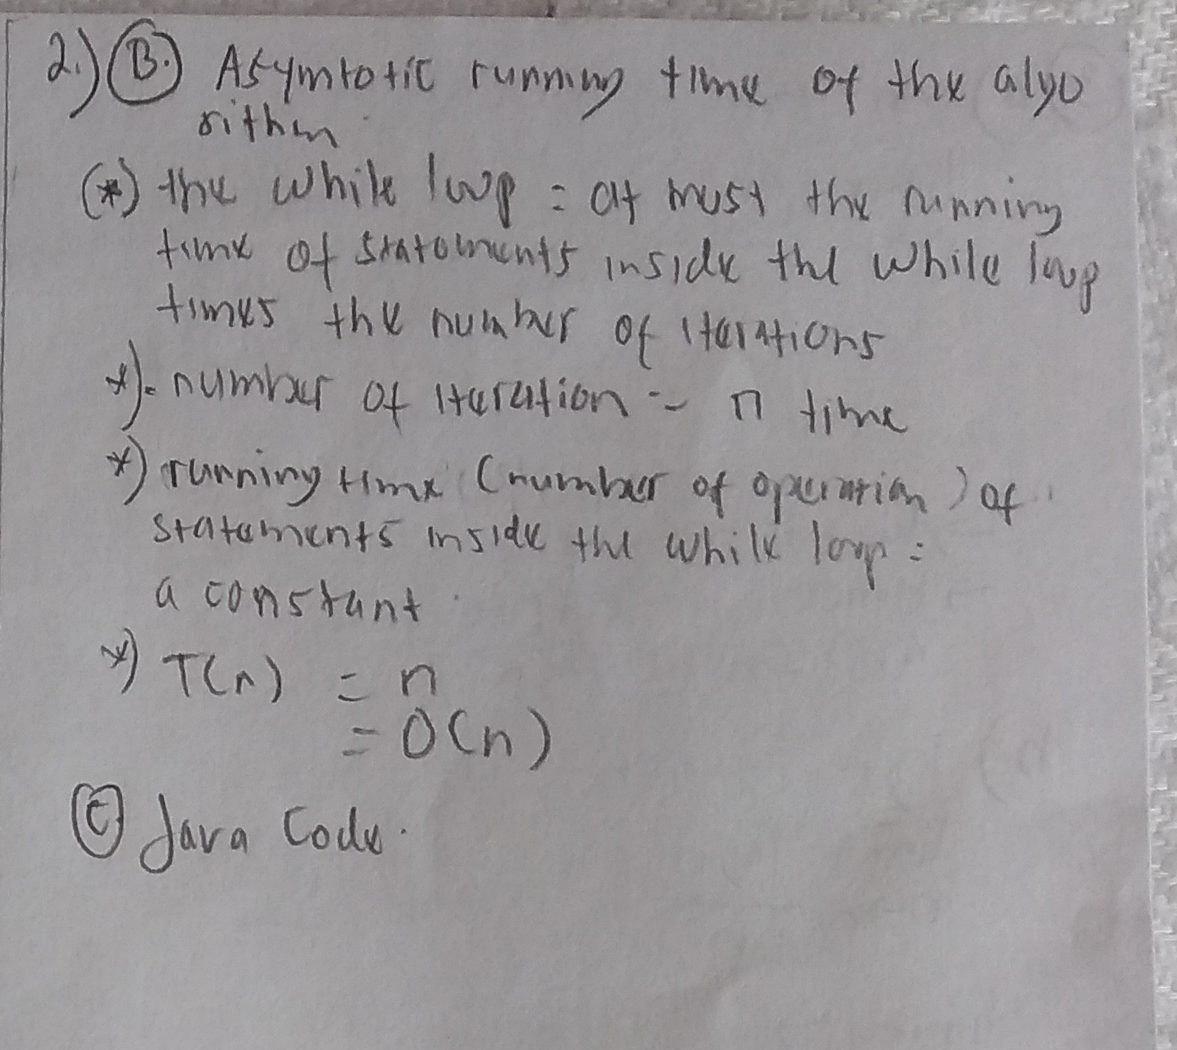 2.) (B.) Asymtotic running time of the algo
rithm
(*) the while loop = at most the running
time of statements inside the while loop
times the number of iterations
*). number of iteration - n time
*) running time (number of operation) of
statements inside the while loop =
a constant.
*) T(n) = n
= O(n)
(C) Java Code.